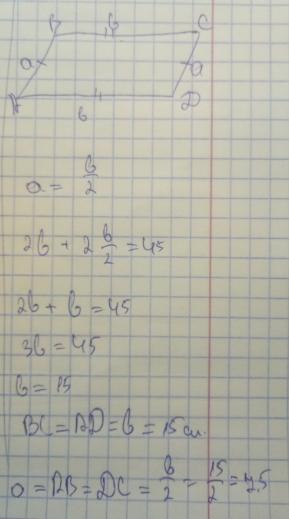 B b C
a a
A D
b
a = b/2
2b + 2 b/2 = 45
2b + b = 45
3b = 45
b = 15
BC = AD = b = 15 см.
a = AB = DC = b/2 = 15/2 = 7,5